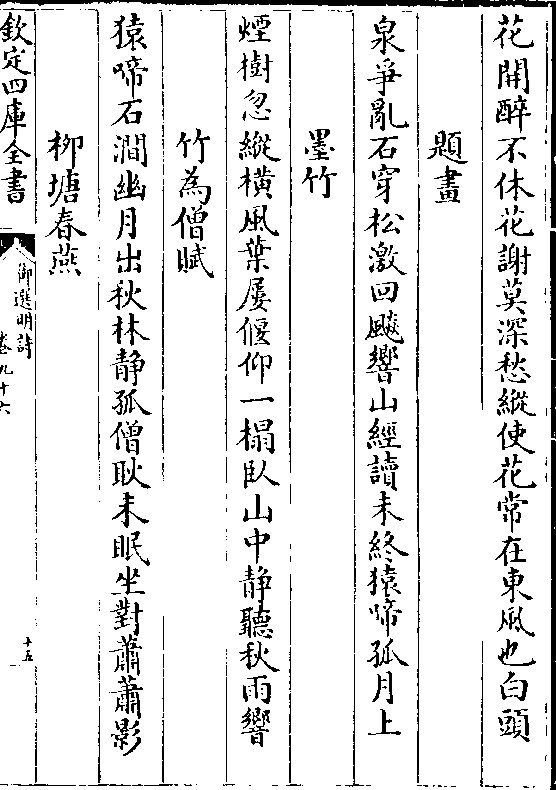 花開醉不休花謝莫深愁縱使花常在東風也白頭
題畫
泉爭亂石穿松激回飈響山經讀未終猿啼孤月上
墨竹
煙樹忽縱橫風葉屢偃仰一榻臥山中靜聽秋雨響
竹為僧賦
猿啼石澗幽月出秋林靜孤僧耿未眠坐對蕭蕭影
柳塘春燕
欽定四庫全書
御選明詩
卷九十六
十五